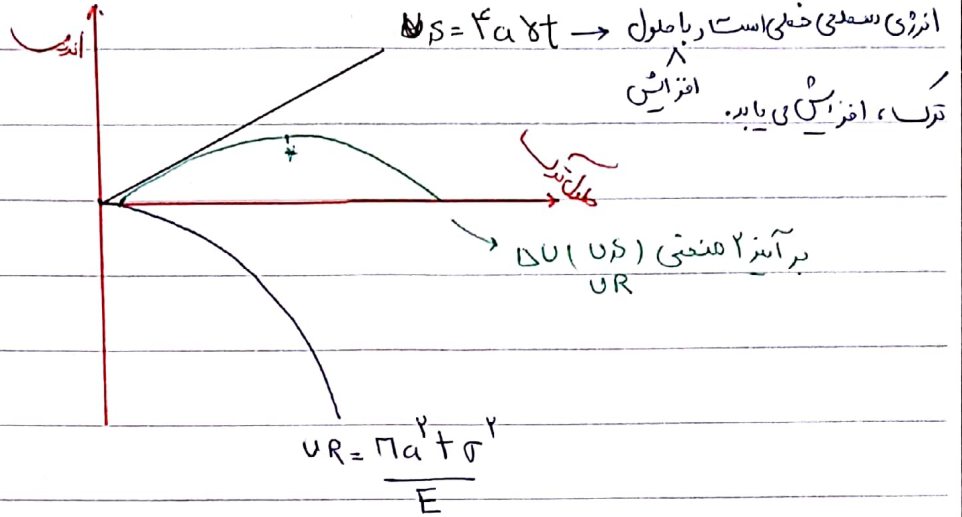 US = ۴aγt → انرژی سطحی خطی است و با طول
افزایش
ترک، افزایش می یابد.
انرژی
طول ترک
برآیند ۲ منحنی ΔU (US)
UR
UR = πa²tσ²
E